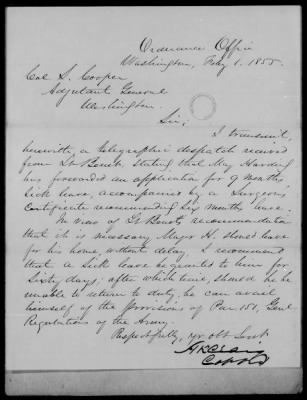 Ordnance Office
Washington, Feby 1. 1855
Col S. Cooper
Adjutant General
Washington.
Sir;
I transmit,
herewith, a telegraphic despatch received
from Lt stating that Maj Harding
has forwarded an application for 9 months
sick leave, accompanied by a Surgeons
Certificate recommending six months leave.
In view of Lt recommendation
that it is necessary Major H. should leave
for his home, without delay, I recommend
that a sick leave be granted to him for
Sixty days; after which time, should he be
unable to return to duty, he can avail
himself of the provisions of Par 151, Genl
Regulations of the Army.
Respectfully, yr obt Servt
H K Craig
Col of Ord